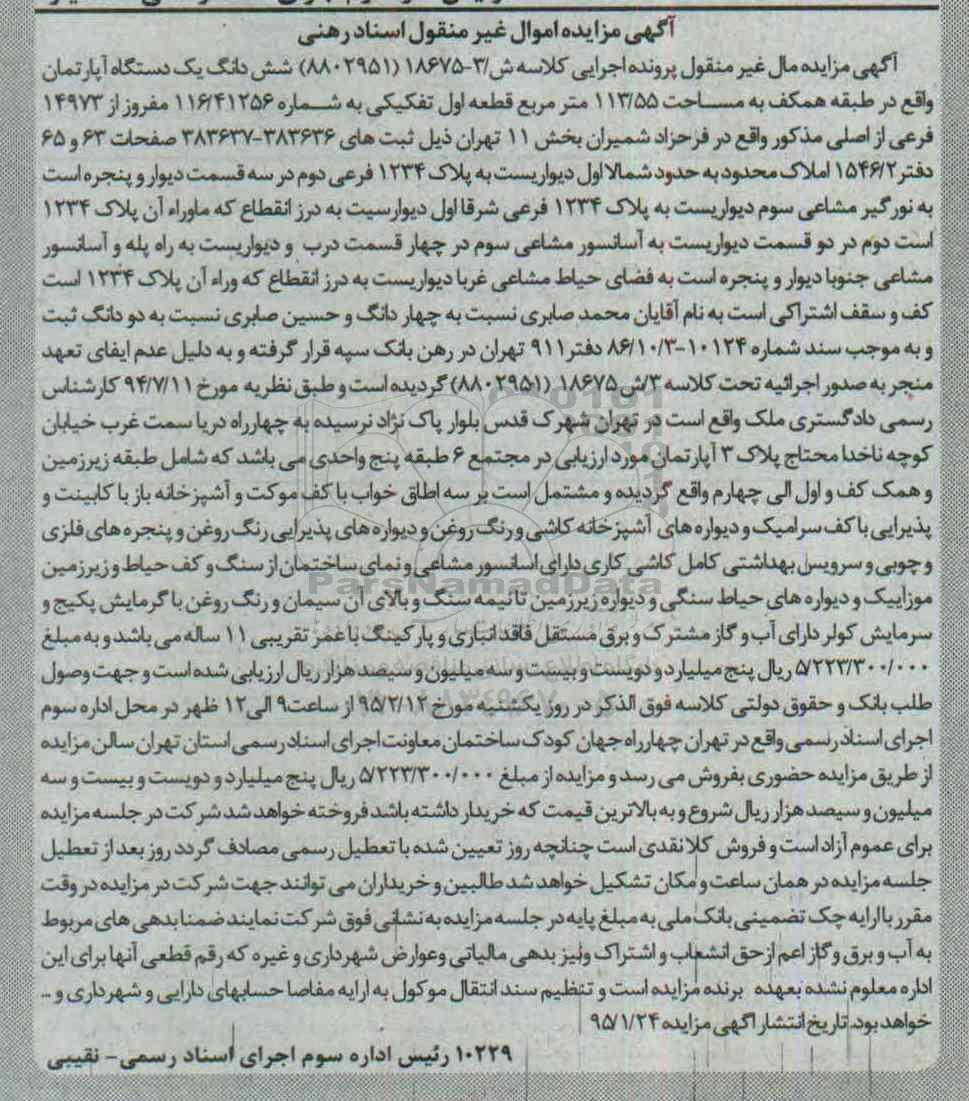 آگهی مزایده اموال غیر منقول اسناد رهنی
آگهی مزایده مال غیر منقول پرونده اجرایی کلاسه ش/۳-۱۸۶۷۵ (۸۸۰۲۹۵۱) شش دانگ یک دستگاه آپارتمان
واقع در طبقه همکف به مساحت ۱۱۳/۵۵ متر مربع قطعه اول تفکیکی به شماره ۱۱۶/۴۱۲۵۶ مفروز از ۱۴۹۷۳
فرعی از اصلی مذکور واقع در فرحزاد شمیران بخش ۱۱ تهران ذیل ثبت های ۳۸۳۶۳۶-۳۸۳۶۳۷ صفحات ۶۳ و ۶۵
دفتر ۱۵۴۶/۲ املاک محدود به حدود شمالا اول دیواریست به پلاک ۱۲۳۴ فرعی دوم در سه قسمت دیوار و پنجره است
به نورگیر مشاعی سوم دیواریست به پلاک ۱۲۳۴ فرعی شرقا اول دیوارسیت به درز انقطاع که ماوراء آن پلاک ۱۲۳۴
است دوم در دو قسمت دیواریست به آسانسور مشاعی سوم در چهار قسمت درب و دیواریست به راه پله و آسانسور
مشاعی جنوبا دیوار و پنجره است به فضای حیاط مشاعی غربا دیواریست به درز انقطاع که وراء آن پلاک ۱۲۳۴ است
کف و سقف اشتراکی است به نام آقایان محمد صابری نسبت به چهار دانگ و حسین صابری نسبت به دو دانگ ثبت
و به موجب سند شماره ۱۰۱۲۴-۸۶/۱۰/۳ دفتر ۹۱۱ تهران در رهن بانک سپه قرار گرفته و به دلیل عدم ایفای تعهد
منجر به صدور اجرائیه تحت کلاسه ۳/ش ۱۸۶۷۵ (۸۸۰۲۹۵۱) گردیده است و طبق نظریه مورخ ۹۴/۷/۱۱ کارشناس
رسمی دادگستری ملک واقع است در تهران شهرک قدس بلوار پاک نژاد نرسیده به چهارراه دریا سمت غرب خیابان
کوچه ناخدا محتاج پلاک ۳ آپارتمان مورد ارزیابی در مجتمع ۶ طبقه پنج واحدی می باشد که شامل طبقه زیرزمین
و همک کف و اول الی چهارم واقع گردیده و مشتمل است بر سه اطاق خواب با کف موکت و آشپزخانه باز با کابینت و
پذیرایی با کف سرامیک و دیواره های آشپزخانه کاشی و رنگ روغن و دیواره های پذیرایی رنگ روغن و پنجره های فلزی
و چوبی و سرویس بهداشتی کامل کاشی کاری دارای اسانسور مشاعی و نمای ساختمان از سنگ و کف حیاط و زیرزمین
موزاییک و دیواره های حیاط سنگی و دیواره زیرزمین تا نیمه سنگ و بالای آن سیمان و رنگ روغن با گرمایش پکیج و
سرمایش کولر دارای آب و گاز مشترک و برق مستقل فاقد انباری و پارکینگ با عمر تقریبی ۱۱ ساله می باشد و به مبلغ
۵/۲۲۳/۳۰۰/۰۰۰ ریال پنج میلیارد و دویست و بیست و سه میلیون و سیصد هزار ریال ارزیابی شده است و جهت وصول
طلب بانک و حقوق دولتی کلاسه فوق الذکر در روز یکشنبه مورخ ۹۵/۲/۱۲ از ساعت ۹ الی ۱۲ ظهر در محل اداره سوم
اجرای اسناد رسمی واقع در تهران چهارراه جهان کودک ساختمان معاونت اجرای اسناد رسمی استان تهران سالن مزایده
از طریق مزایده حضوری بفروش می رسد و مزایده از مبلغ ۵/۲۲۳/۳۰۰/۰۰۰ ریال پنج میلیارد و دویست و بیست و سه
میلیون و سیصد هزار ریال شروع و به بالاترین قیمت که خریدار داشته باشد فروخته خواهد شد شرکت در جلسه مزایده
برای عموم آزاد است و فروش کلا نقدی است چنانچه روز تعیین شده با تعطیل رسمی مصادف گردد روز بعد از تعطیل
جلسه مزایده در همان ساعت و مکان تشکیل خواهد شد طالبین و خریداران می توانند جهت شرکت در مزایده در وقت
مقرر با ارایه چک تضمینی بانک ملی به مبلغ پایه در جلسه مزایده به نشانی فوق شرکت نمایند ضمنا بدهی های مربوط
به آب و برق و گاز اعم از حق انشعاب و اشتراک و نیز بدهی مالیاتی و عوارض شهرداری و غیره که رقم قطعی آنها برای این
اداره معلوم نشده بعهده برنده مزایده است و تنظیم سند انتقال موکول به ارایه مفاصا حسابهای دارایی و شهرداری و ...
خواهد بود. تاریخ انتشار آگهی مزایده ۹۵/۱/۲۴
۱۰۲۲۹ رئیس اداره سوم اجرای اسناد رسمی - نقیبی
ParsNamadData